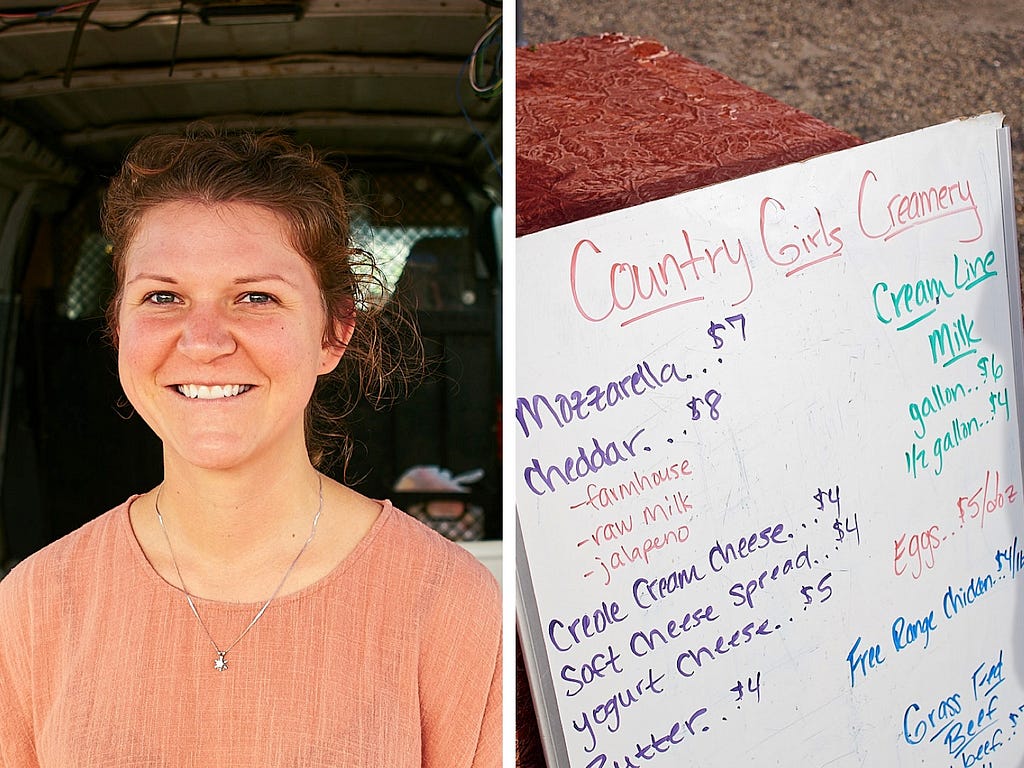 Country Girls Creamery
Mozzarella...$7
cheddar....$8
-farmhouse
-raw milk
-jalapeno
Creole Cream Cheese...$4
Soft Cheese Spread...$4
yogurt cheese...$5
Butter...$4
Cream Line
Milk
gallon...$6
1/2 gallon...$4
Eggs...$5/doz
Free Range Chicken...$4/lb
Grass Fed
Beef
beef..